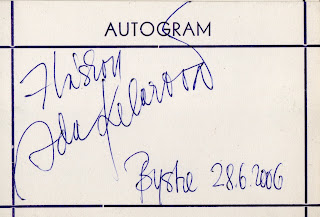 AUTOGRAM
Ida Kelarová
Bystré 28.6.2006